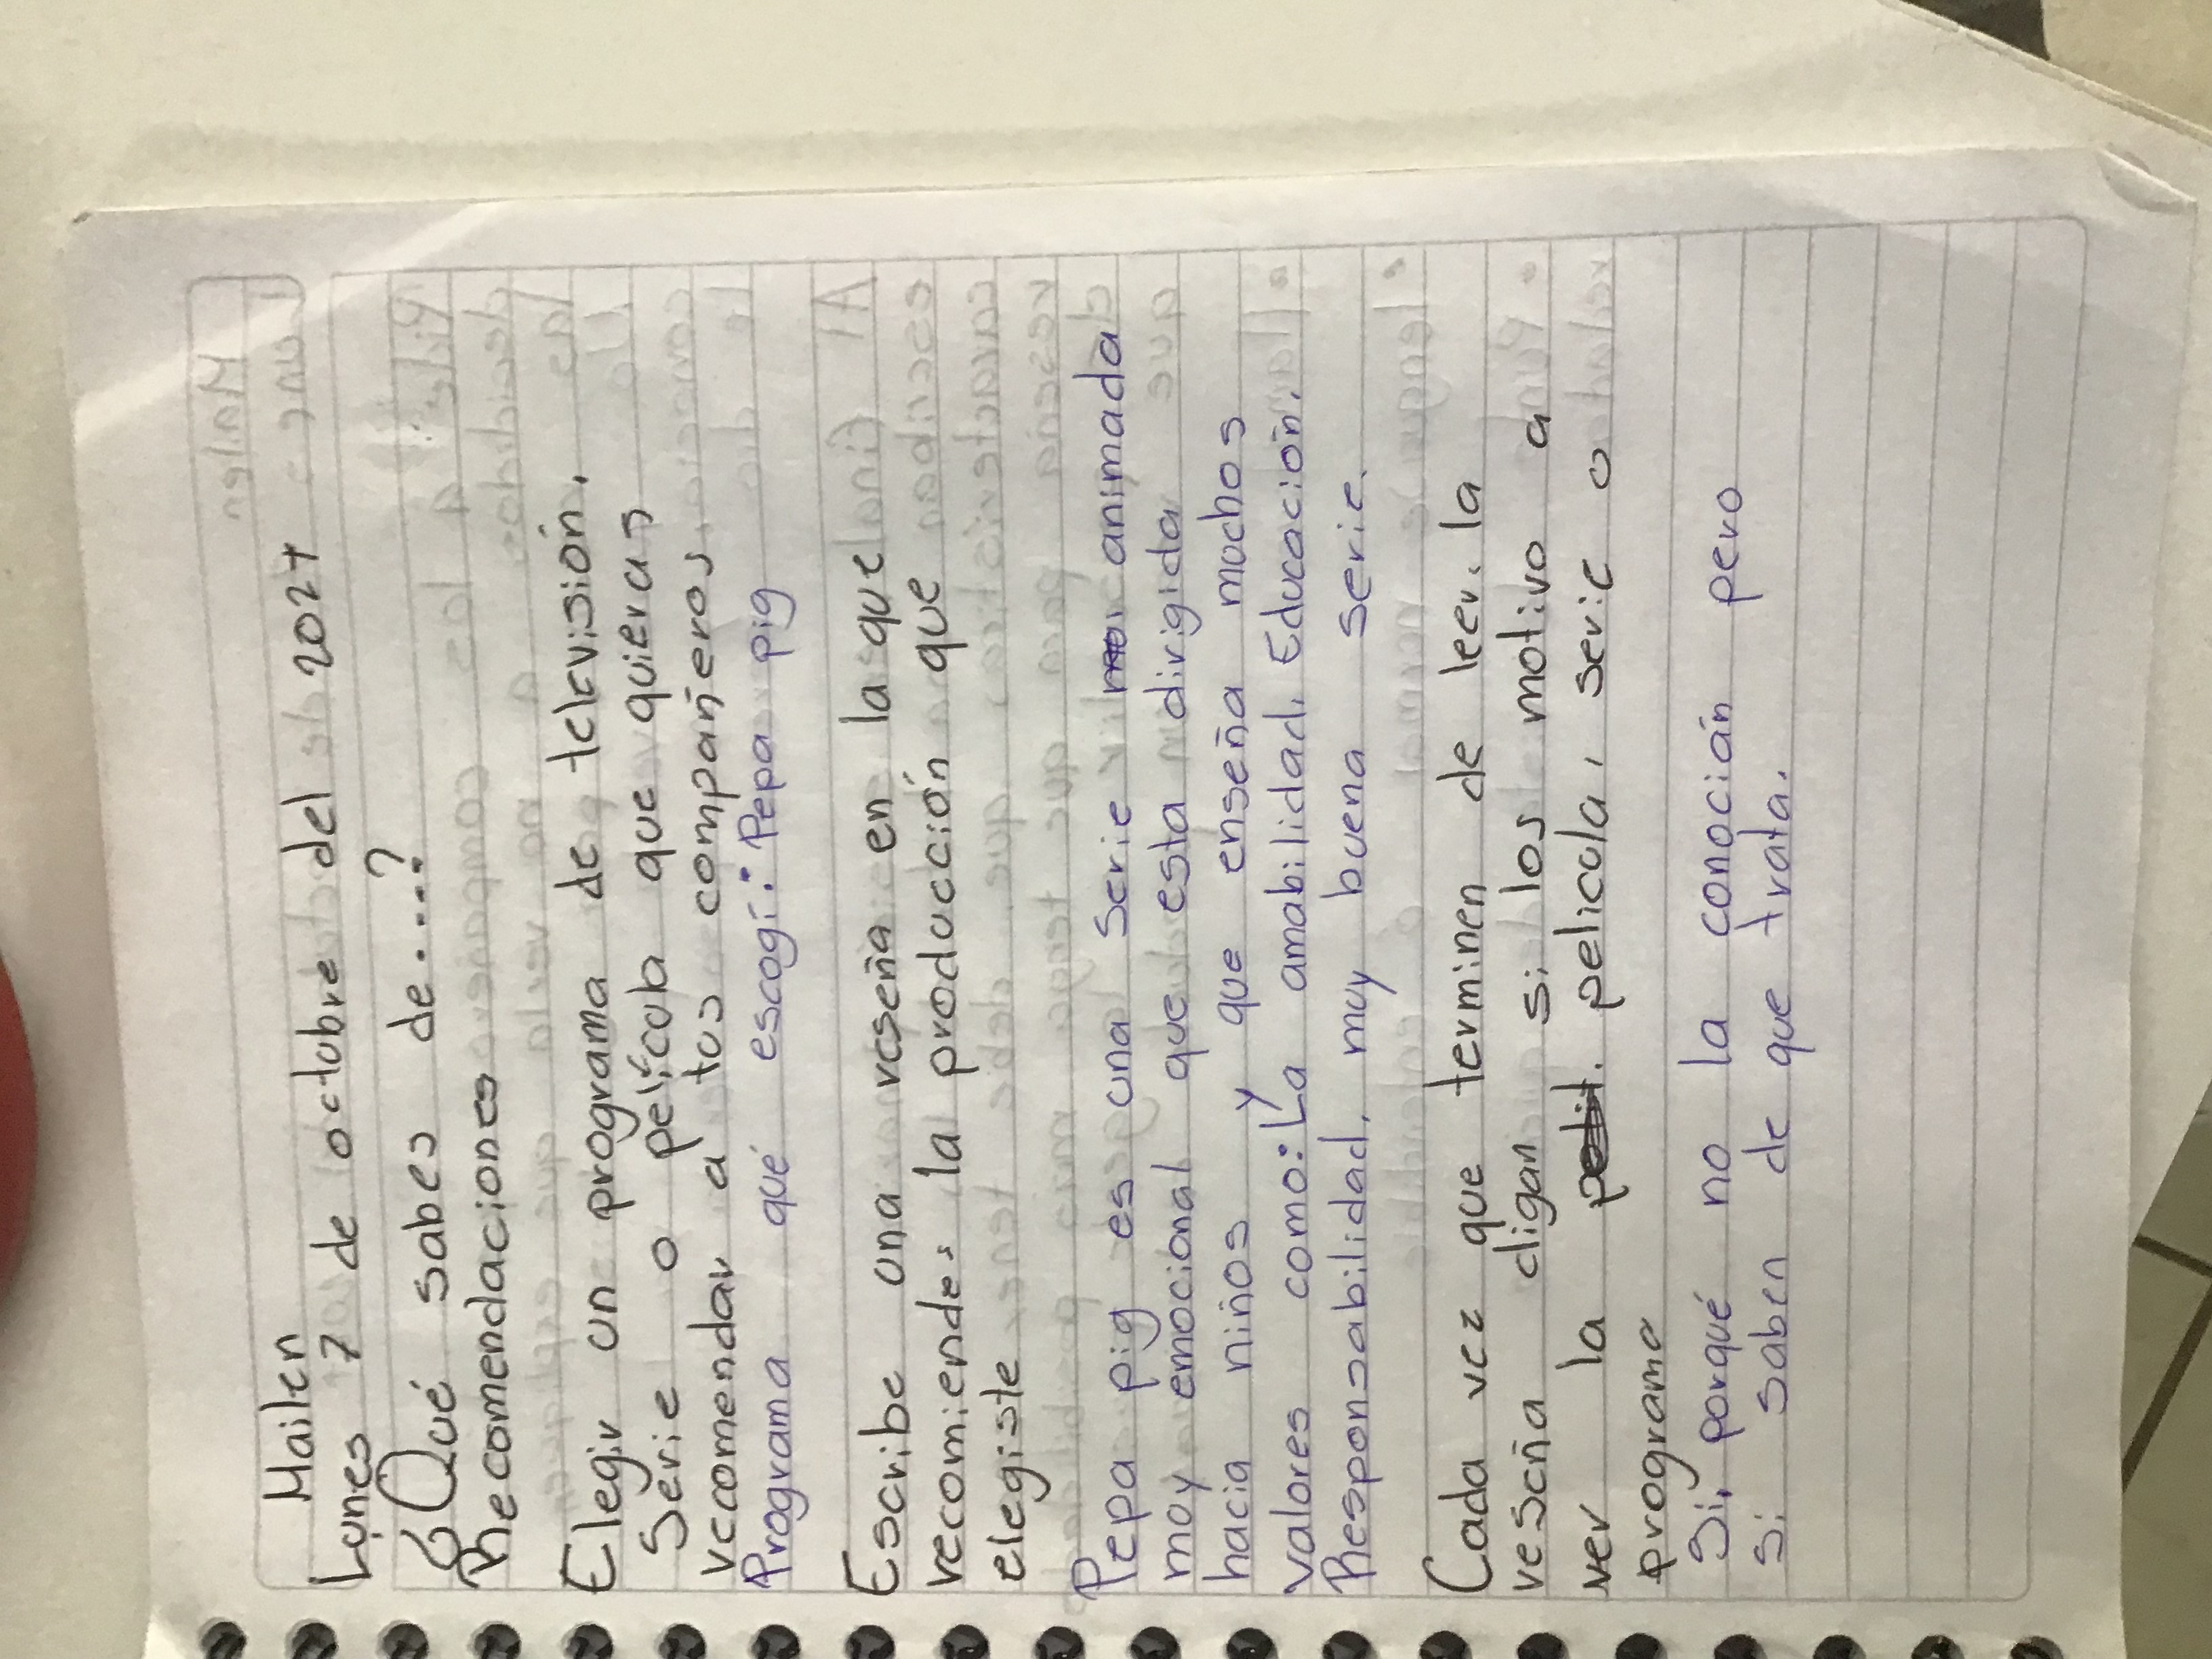 Mailen
Lunes 7 de octubre del 2024
¿Qué sabes de....?
Recomendaciones
Elegir un programa de televisión,
Serie o película que quieras
recomendar a tus compañeros.
Programa qué escogí: Pepa pig
Escribe una reseña en la que
recomiendes la producción que
elegiste
Pepa pig es una serie animada
muy emocional que esta dirigida
hacia niños y que enseña muchos
valores como: La amabilidad, Educación,
Responsabilidad, muy buena serie.
Cada vez que terminen de leer. la
reseña digan si los motivo a
ver la pelicula, serie o
programa
Si, porqué no la conocián pero
si saben de que trata.